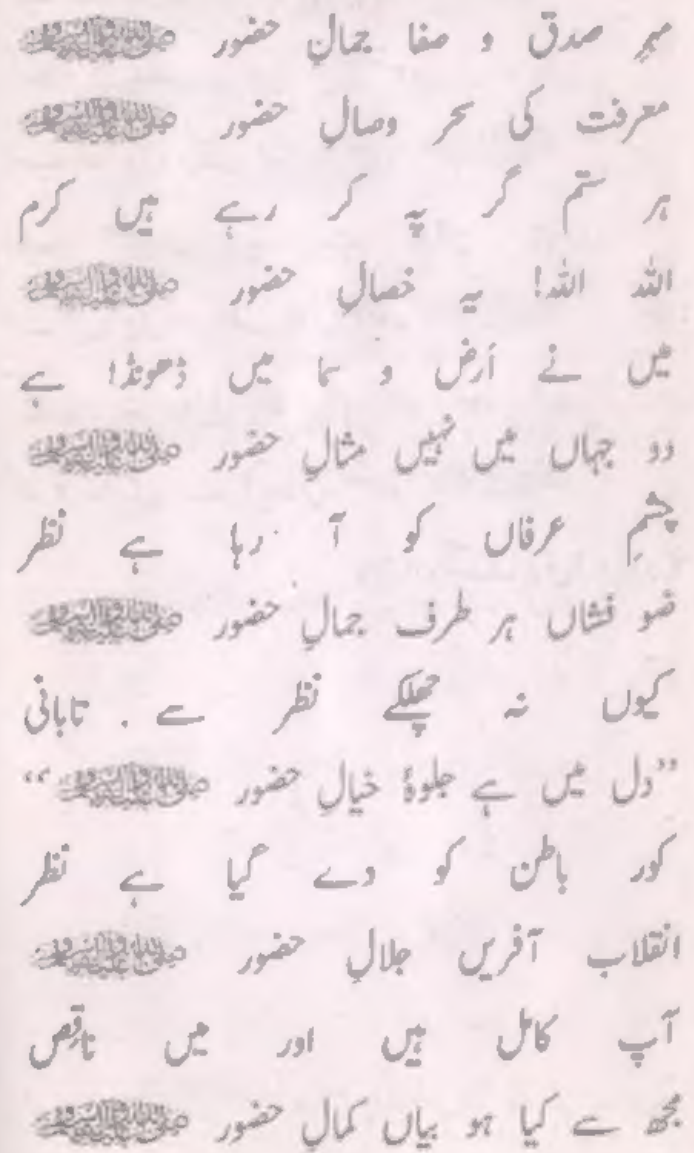 مہرِ صدق و صفا جمالِ حضور ﷺ
معرفت کی سحر وصالِ حضور ﷺ
ہر ستم گر پہ کر رہے ہیں کرم
اللہ اللہ! یہ خصالِ حضور ﷺ
میں نے اَرض و سما میں ڈھونڈا ہے
دو جہاں میں نہیں مثالِ حضور ﷺ
چشمِ عرفاں کو آ رہا ہے نظر
ضو فشاں ہر طرف جمالِ حضور ﷺ
کیوں نہ جھلکے نظر سے تابانی
”دل میں ہے جلوۂ خیالِ حضور ﷺ“
کور باطن کو دے گیا ہے نظر
انقلاب آفریں جلالِ حضور ﷺ
آپ کامل ہیں اور میں ناقِص
مجھ سے کیا ہو بیاں کمالِ حضور ﷺ